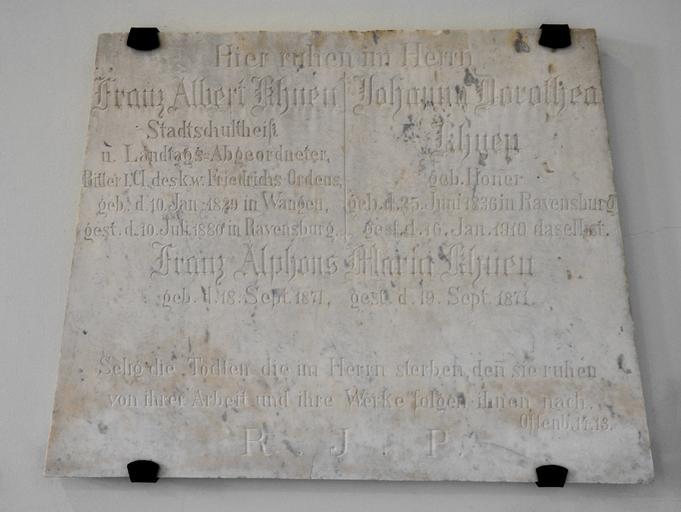 Hier ruhen im Herrn
Franz Albert Khuen
Stadtschultheiß
u. Landtags=Abgeordneter,
Ritter I. Cl. des k. w. Friedrichs-Ordens,
geb. d. 10. Jan. 1829 in Wangen,
gest. d. 10. Juli 1886 in Ravensburg.
Johanna Dorothea
Khuen
geb. Honer
geb. d. 25. Juni 1836 in Ravensburg
gest. d. 16. Jan. 1910 daselbst.
Franz Alphons Maria Khuen
geb. d. 18. Sept. 1871, gest. d. 19. Sept. 1871.
Selig die Todten die im Herrn sterben, den̄ sie ruhen
von ihrer Arbeit und ihre Werke folgen ihnen nach.
Offenb. 14. 13.
R. J. P.